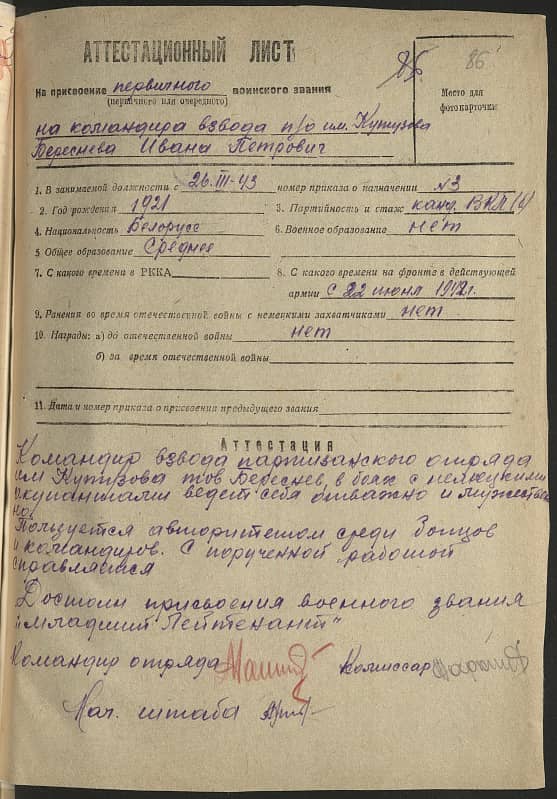 86
АТТЕСТАЦИОННЫЙ ЛИСТ
На присвоение первичного воинского звания
(первичного или очередного)
Место для
фотокарточки
на командира взвода п/о им. Кутузова
Береснева Ивана Петрович
1. В занимаемой должности с 26.III-43 номер приказа о назначении №3
2. Год рождения 1921 3. Партийность и стаж канд. ВКП(б)
4. Национальность Белорусс 6. Военное образование нет
5 Общее образование Среднее
7. С какого времени в РККА 8. С какого времени на фронте в действующей
армии с 22 июня 1942г.
9. Ранения во время отечественной войны с немецкими захватчиками нет
10. Награды: а) до отечественной войны нет
б) за время отечественной войны
11. Дата и номер приказа о присвоении предыдущего звания
Аттестация
Командир взвода партизанского отряда
им Кутузова тов Береснев, в боях с немецкими
оккупантами ведет себя отважно и мужествен
но.
Пользуется авторитетом среди бойцов
и командиров. С порученной работой
справляется
Достоин присвоения военного звания
"младший Лейтенант"
Командир отряда Комиссар
Нач. штаба